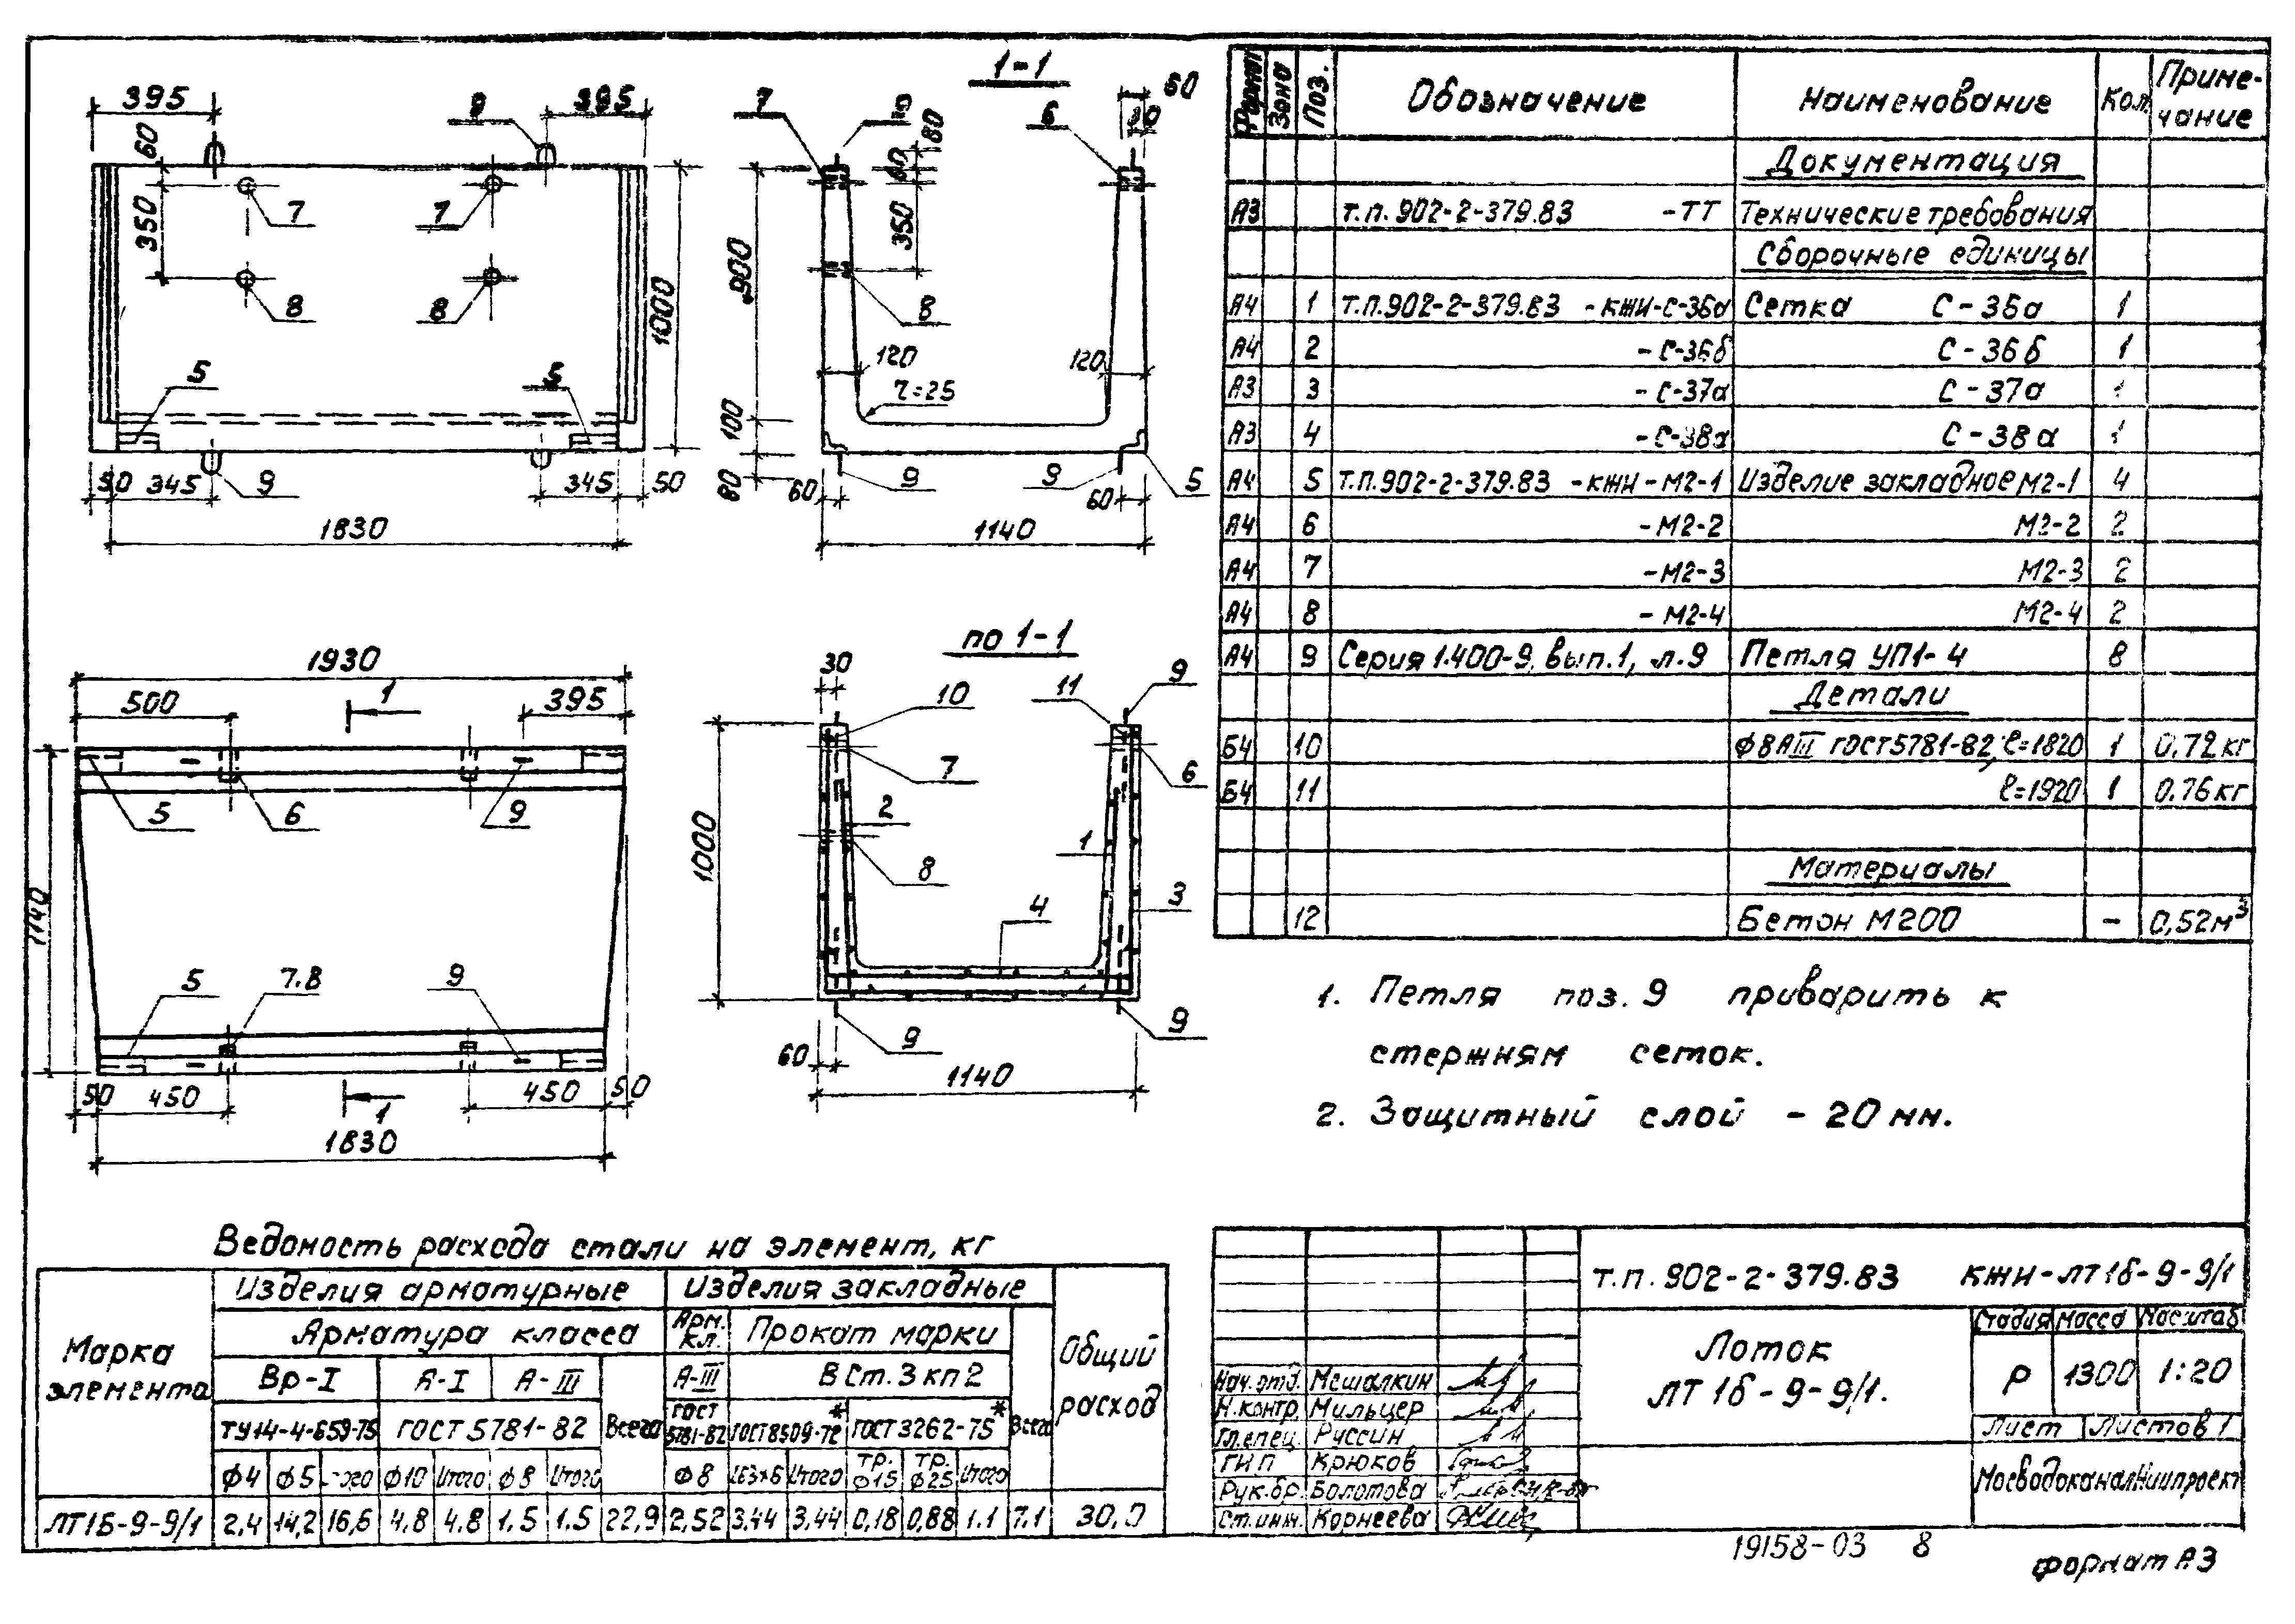 1-1
395
9
395
60
350
7
7
8
8
5
5
1000
50
345
9
345
50
1830
7
6
60
60
80
350
900
8
120
120
г=25
100
80
60
9
9
60
5
1140
1930
500
1
395
5
6
9
1140
5
7.8
9
50
450
1
450
50
1830
по 1-1
30
10
11
9
7
6
2
1
8
1000
4
3
9
9
60
1140
Формат Зона Поз. Обозначение Наименование Кол. Приме-
чание
Документация
А3 т.п. 902-2-379.83 -ТТ Технические требования
Сборочные единицы
А4 1 т.п. 902-2-379.83 -КЖИ-С-36а Сетка С-36а 1
А4 2 -С-36б С-36б 1
А3 3 -С-37а С-37а 1
А3 4 -С-38а С-38а 1
А4 5 т.п. 902-2-379.83 -КЖИ-М2-1 Изделие закладное М2-1 4
А4 6 -М2-2 М2-2 2
А4 7 -М2-3 М2-3 2
А4 8 -М2-4 М2-4 2
А4 9 Серия 1.400-9, вып.1, л.9 Петля УП1-4 8
Детали
Б4 10 ф8АIII ГОСТ5781-82, ℓ=1820 1 0.72 кг
Б4 11 ℓ=1920 1 0.76 кг
Материалы
12 Бетон М200 - 0,52м³
1. Петля поз. 9 приварить к
стержням сеток.
2. Защитный слой - 20 мм.
Ведомость расхода стали на элемент, кг
Марка
элемента
Изделия арматурные Изделия закладные
Общий
расход
Арматура класса Арм.
кл. Прокат марки
Вр-I А-I А-III Всего А-III ВСт.3кп2 Всего
ТУ14-4-659-75 ГОСТ 5781-82 ГОСТ
5781-82 ГОСТ8509-72* ГОСТ3262-75*
ф4 ф5 ф10 Итого ф8 Итого ф8 L63х6 Итого тр.
ф15 тр.
ф25 Итого
ЛТ1б-9-9/1 2,4 14,2 16,6 4,8 4,8 1,5 1.5 22,9 2,52 3,44 3,44 0,18 0,88 1.1 7.1 30,0
т.п. 902-2-379.83 КЖИ-ЛТ1б-9-9/1
Лоток
ЛТ 1б-9-9/1.
Стадия Масса Масштаб
Р 1300 1:20
Лист Листов 1
МосводоканалНИИпроект
Нач.отд. Мешалкин
Н.контр. Мильцер
Гл.спец. Руссин
ГИП Крюков
Рук.бр. Болотова
Ст.инж. Корнеева
19158-03 8
Формат А3